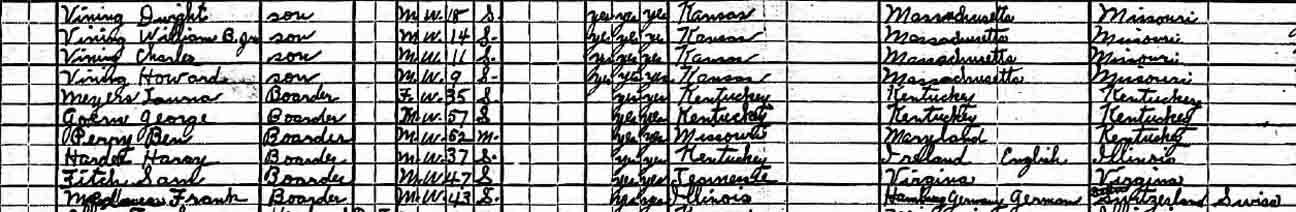 Vining Dwight son M. W. 18 S. yes yes yes Kansas Massachusetts Missouri
Vining William B. Jr. son M. W. 14 S. yes yes yes Kansas Massachusetts Missouri
Vining Charles son M. W. 11 S. yes yes yes Kansas Massachusetts Missouri
Vining Howard son M. W. 9 S. yes yes yes Kansas Massachusetts Missouri
Meyers Boarder F. W. 35 S. yes yes Kentucky Kentucky Kentucky
George Boarder M. W. 57 S. yes yes Kentucky Kentucky Kentucky
Perry Ben Boarder M. W. 52 m. yes yes Missouri Maryland Kentucky
Harry Boarder M. W. 37 S. yes yes Kentucky Ireland English Illinois
Fitch Sam Boarder M. W. 47 S. yes yes Virginia Virginia
Frank Boarder M. W. 43 S. yes yes Illinois Hamburg Germany German Switzerland Swiss